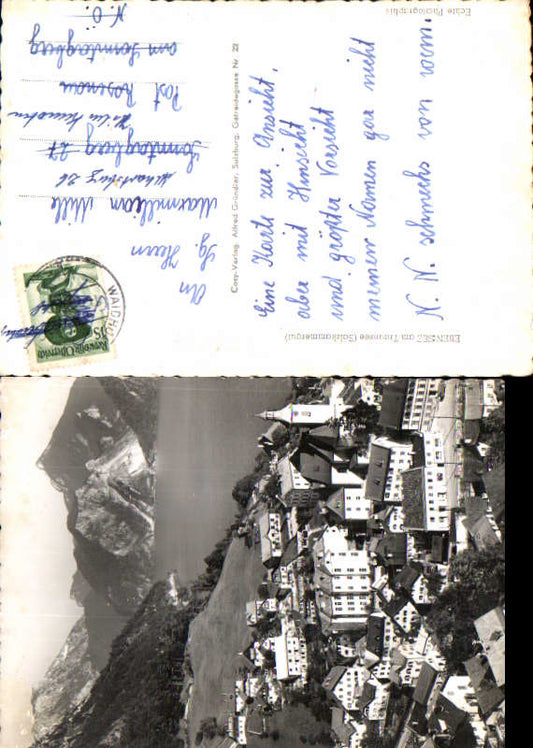 Echte Photographie
Eine Karte zur Ansicht,
aber mit Hinsicht
und größter Vorsicht
meinen Namen gar nicht
N. N. schmecks von wem.
EBENSEE am Traunsee (Salzkammergut)
Cosy-Verlag, Alfred Gründler, Salzburg, Getreidegasse Nr. 22
An
Sg. Herrn
Maximilian Mille
Sonntagberg 27
Post Rosenau
am Sonntagberg
N.Ö.
WAIDHOF
Republik Österreich